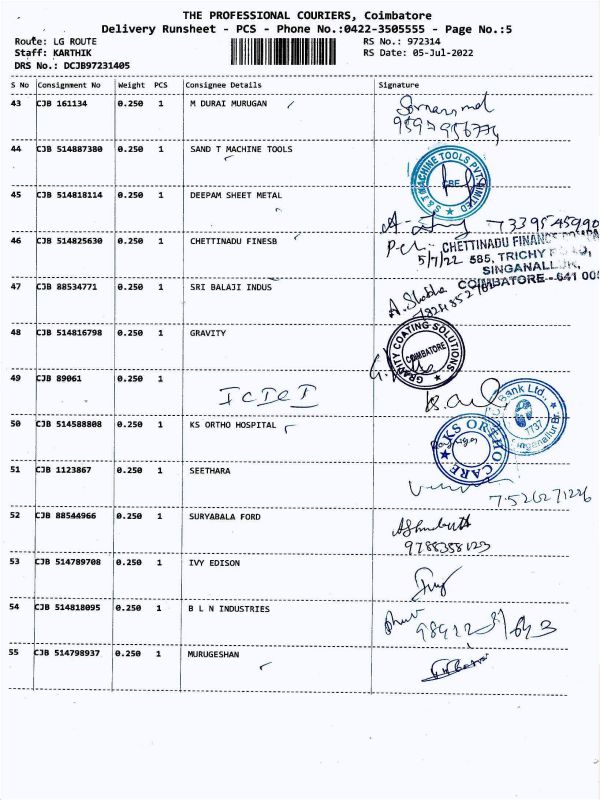 THE PROFESSIONAL COURIERS, Coimbatore
Delivery Runsheet - PCS - Phone No.:0422-3505555 - Page No.:5
Route: LG ROUTE
RS No.: 972314
Staff: KARTHIK
RS Date: 05-Jul-2022
DRS No.: DCJB97231405
S No Consignment No Weight PCS Consignee Details Signature
43 CJB 161134 0.250 1 M DURAI MURUGAN
44 CJB 514887380 0.250 1 SAND T MACHINE TOOLS
S & T MACHINE TOOLS PVT. LIMITED
CBE
45 CJB 514818114 0.250 1 DEEPAM SHEET METAL
7339545990
46 CJB 514825630 0.250 1 CHETTINADU FINESB
5/7/22
CHETTINADU FINANCE
585, TRICHY ROAD,
SINGANALLUR,
COIMBATORE - 641 005
47 CJB 88534771 0.250 1 SRI BALAJI INDUS
48 CJB 514816798 0.250 1 GRAVITY
GRAVITY COATING SOLUTIONS
COIMBATORE
49 CJB 89061 0.250 1 ICICI
Bank Ltd.
7737
Singanallur Br.
50 CJB 514588808 0.250 1 KS ORTHO HOSPITAL
KS ORTHO CARE
51 CJB 1123867 0.250 1 SEETHARA
7526271226
52 CJB 88544966 0.250 1 SURYABALA FORD
9788388123
53 CJB 514789708 0.250 1 IVY EDISON
54 CJB 514818095 0.250 1 B L N INDUSTRIES
55 CJB 514798937 0.250 1 MURUGESHAN